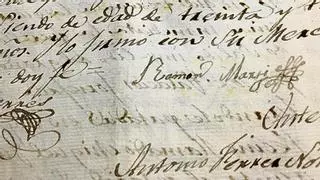 siendo de edad de treinta y
lo firmó con Su Merc
doy fe =
Ramon Marti
Ante
Antonio Ferrer No